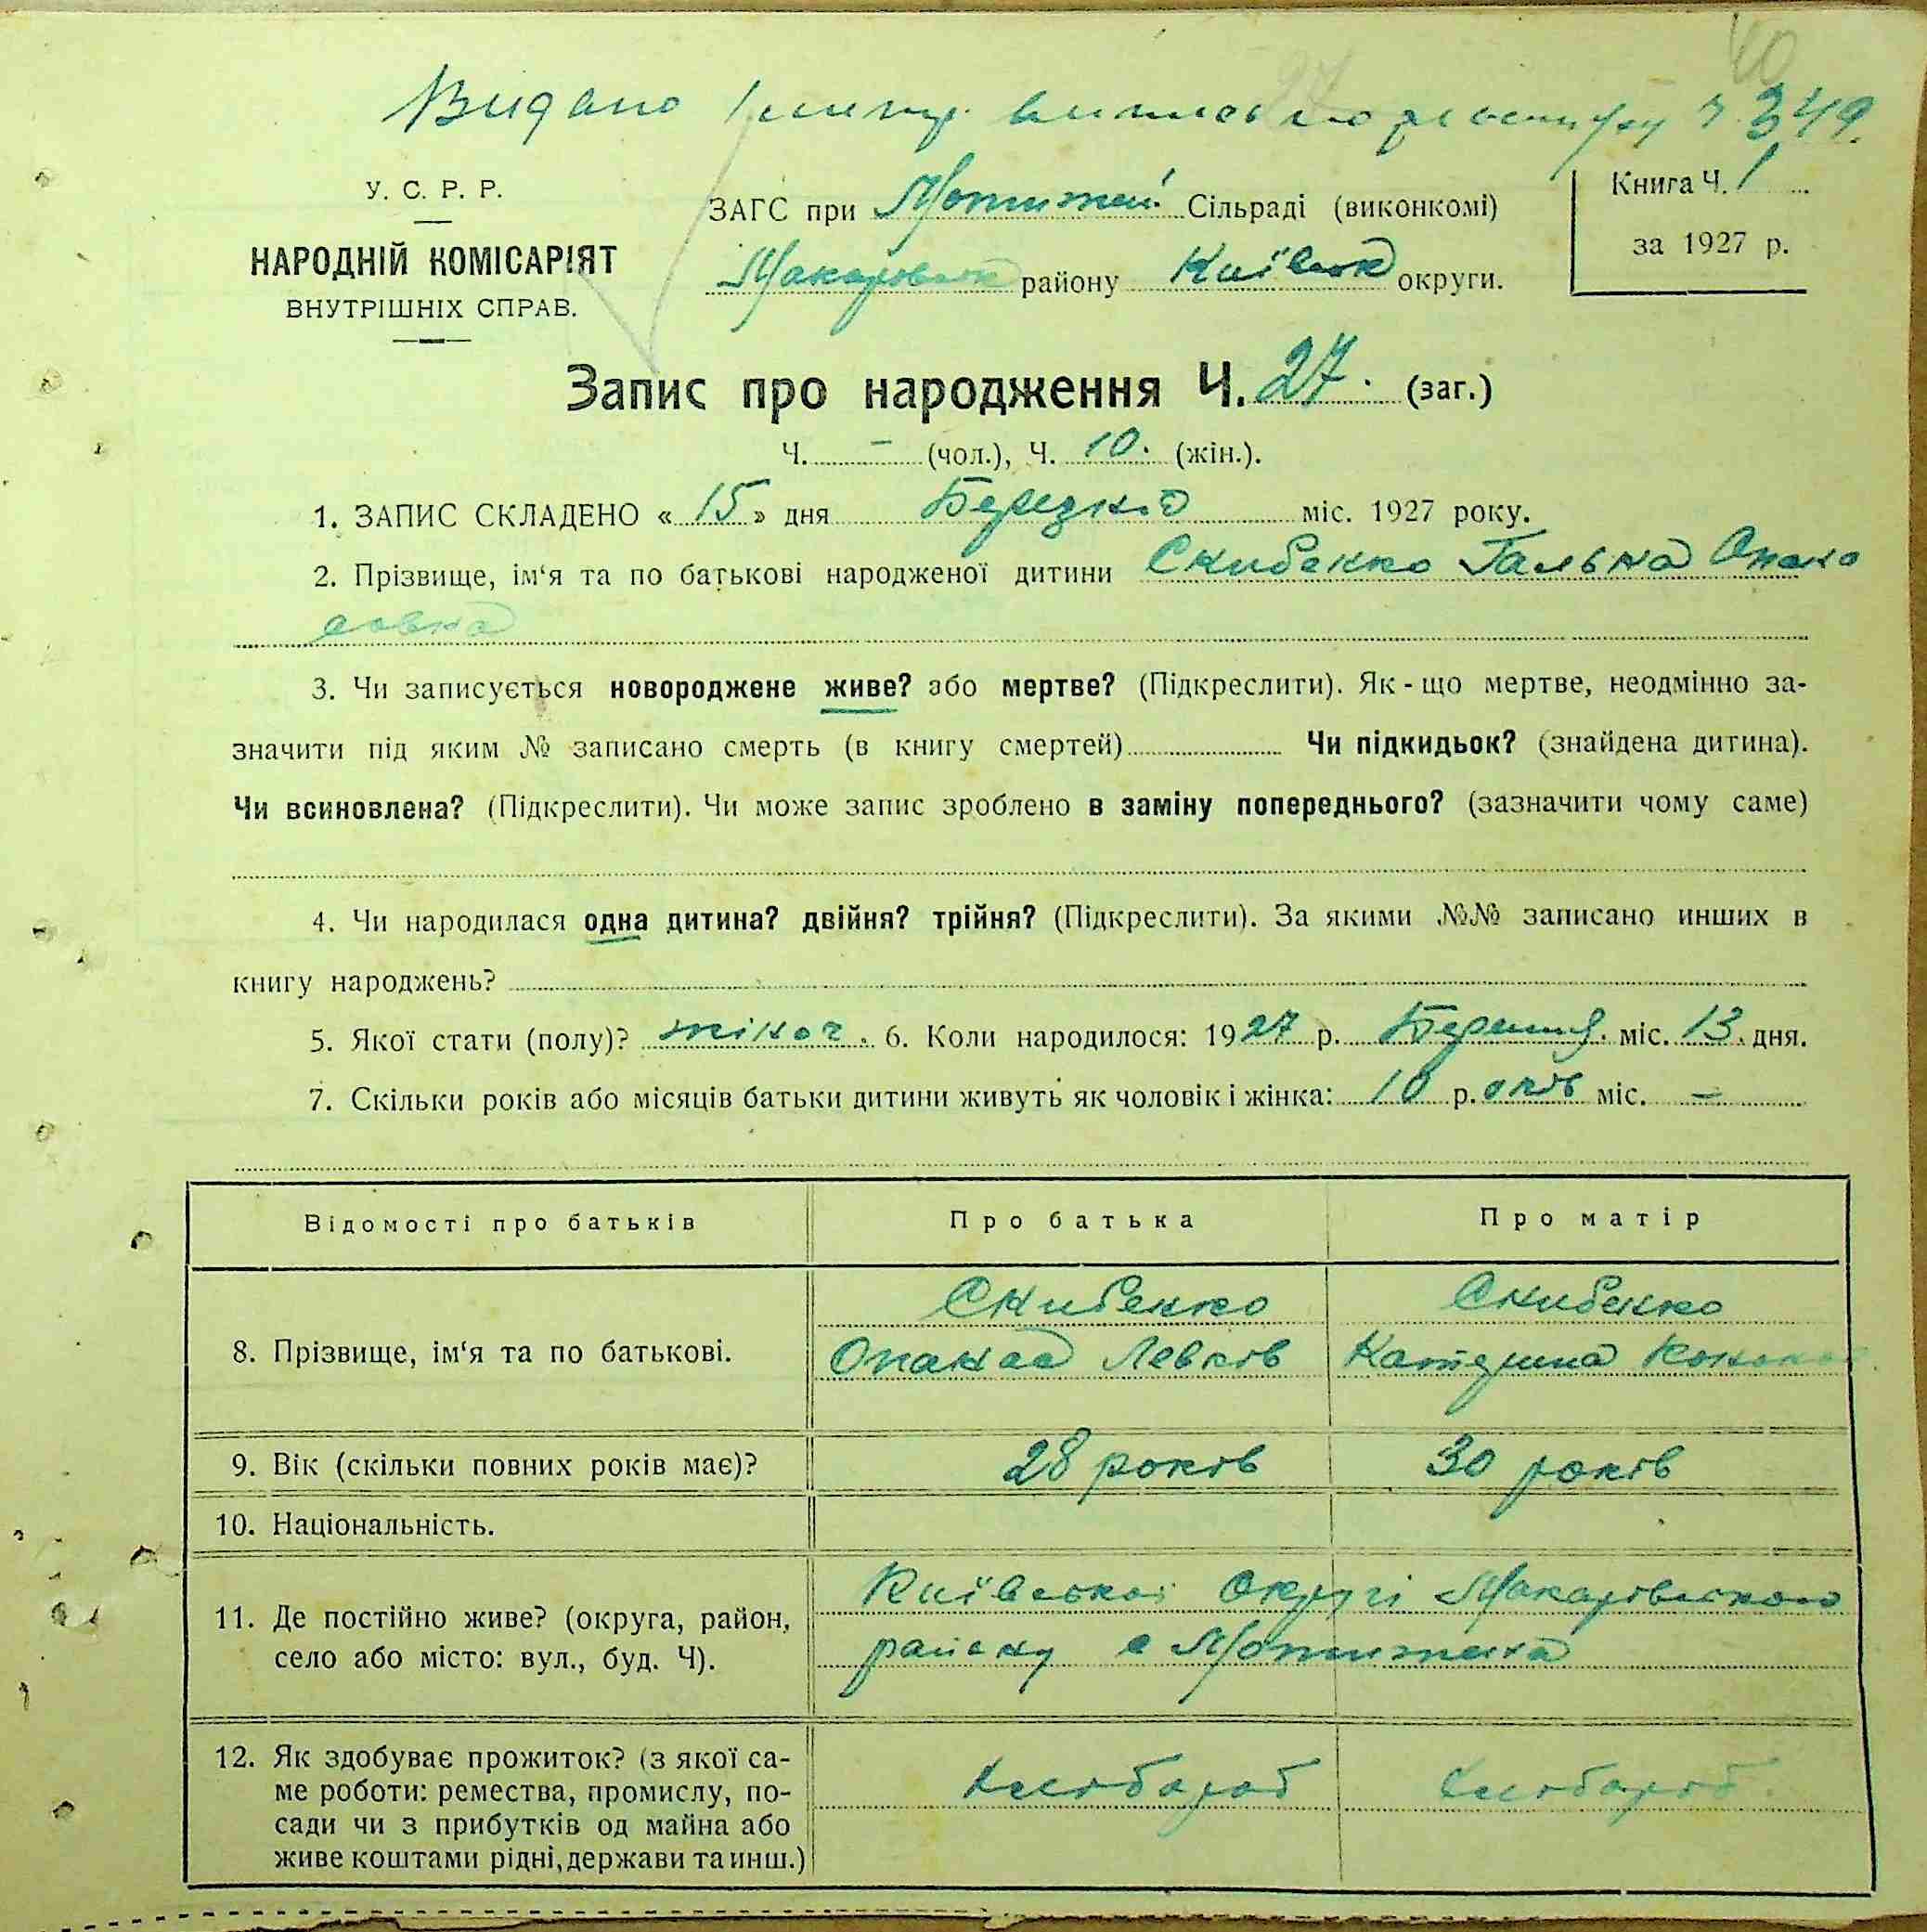 40
27
Видано виписъ по реєстру Ч. 349.
У. С. Р. Р.
НАРОДНІЙ КОМІСАРІЯТ
ВНУТРІШНІХ СПРАВ.
ЗАГС при Мотижен. Сільраді (виконкомі)
Макарівськ району Київськ округи.
Книга Ч. 1
за 1927 р.
Запис про народження Ч. 27. (заг.)
Ч. – (чол.), Ч. 10. (жін.).
1. ЗАПИС СКЛАДЕНО « 15 » дня Березня міс. 1927 року.
2. Прізвище, ім'я та по батькові народженої дитини Скибенко Галька Опана
совна
3. Чи записується новороджене живе? або мертве? (Підкреслити). Як-що мертве, неодмінно за-
значити під яким № записано смерть (в книгу смертей) Чи підкидьок? (знайдена дитина).
Чи всиновлена? (Підкреслити). Чи може запис зроблено в заміну попереднього? (зазначити чому саме)
4. Чи народилася одна дитина? двійня? трійня? (Підкреслити). За якими №№ записано инших в
книгу народжень?
5. Якої стати (полу)? жіноч. 6. Коли народилося: 1927 р. Березня. міс. 13. дня.
7. Скільки років або місяців батьки дитини живуть як чоловік і жінка: 10 р. оків міс. –
Відомості про батьків Про батька Про матір
8. Прізвище, ім'я та по батькові. Скибенко Скибенко
Опанас Левков Катерина
9. Вік (скільки повних років має)? 28 років 30 років
10. Національність.
11. Де постійно живе? (округа, район,
село або місто: вул., буд. Ч).
Київської Округі Макарівського
району с Мотижена
12. Як здобуває прожиток? (з якої са-
ме роботи: ремества, промислу, по-
сади чи з прибутків од майна або
живе коштами рідні, держави та инш.)
Хлібороб Хлібороб